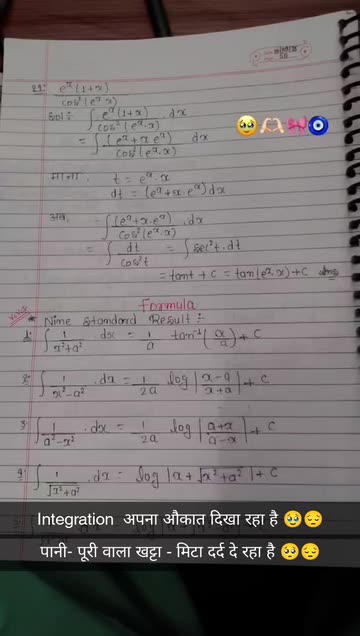 29: e^x(1+x) / cos²(e^x.x)
Sol: ∫ e^x(1+x) / cos²(e^x.x) .dx
= ∫ (e^x+x.e^x) / cos²(e^x.x) dx
माना. t = e^x.x
dt = (e^x+x.e^x)dx
अब. = ∫ (e^x+x.e^x) / cos²(e^x.x) .dx
= ∫ dt / cos²t = ∫ sec²t.dt
= tant + C = tan(e^x.x)+C Ans
Formula
* Nine Standard Result :-
1: ∫ 1 / x²+a² dx = 1/a tan⁻¹(x/a) + C
2: ∫ 1 / x²-a² .dx = 1/2a log |x-a / x+a| + C
3: ∫ 1 / a²-x² .dx = 1/2a log |a+x / a-x| + C
4: ∫ 1 / √x²+a² .dx = log |x+√x²+a²| + C
Integration अपना औकात दिखा रहा है 🥹😔
पानी- पूरी वाला खट्टा - मिटा दर्द दे रहा है 🥺😔